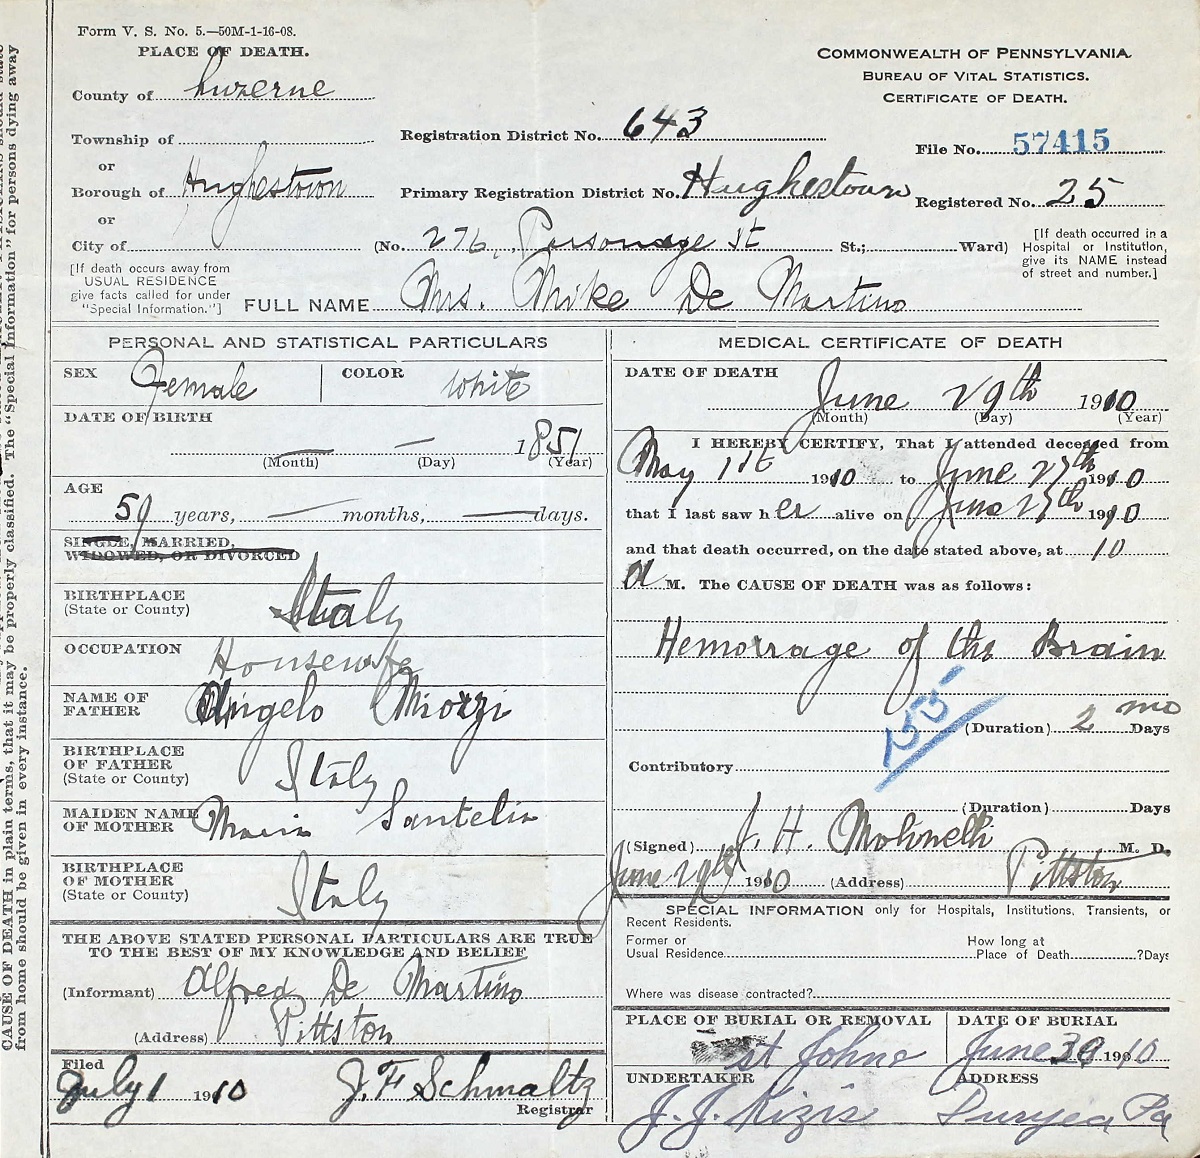 Form V. S. No. 5.—50M-1-16-08.
PLACE OF DEATH.
County of Luzerne
Township of
or
Borough of Hughestown
or
City of
COMMONWEALTH OF PENNSYLVANIA.
BUREAU OF VITAL STATISTICS.
CERTIFICATE OF DEATH.
Registration District No. 643
File No. 57415
Primary Registration District No. Hughestown
Registered No. 25
(No. 276, Parsonage St St.; Ward)
[If death occurred in a
Hospital or Institution,
give its NAME instead
of street and number.]
[If death occurs away from
USUAL RESIDENCE
give facts called for under
"Special Information."]
FULL NAME Mrs. Mike De Martino
PERSONAL AND STATISTICAL PARTICULARS
SEX Female
COLOR White
DATE OF BIRTH
— — 1851
(Month) (Day) (Year)
AGE
59 years, — months, — days.
SINGLE, MARRIED,
WIDOWED, OR DIVORCED
BIRTHPLACE
(State or County) Italy
OCCUPATION Housewife
NAME OF
FATHER Angelo Miozzi
BIRTHPLACE
OF FATHER
(State or County) Italy
MAIDEN NAME
OF MOTHER Maria
BIRTHPLACE
OF MOTHER
(State or County) Italy
THE ABOVE STATED PERSONAL PARTICULARS ARE TRUE
TO THE BEST OF MY KNOWLEDGE AND BELIEF
(Informant) Alfred De Martino
(Address) Pittston
Filed
July 1 1910 J. F. Schmaltz
Registrar
MEDICAL CERTIFICATE OF DEATH
DATE OF DEATH
June 29th 1910
(Month) (Day) (Year)
I HEREBY CERTIFY, That I attended deceased from
May 1st 1910 to June 27th 1910
that I last saw her alive on June 27th 1910
and that death occurred, on the date stated above, at 10
a M. The CAUSE OF DEATH was as follows:
Hemorrage of the Brain
(Duration) 2 mo Days
Contributory
(Duration) Days
(Signed) J. H. M. D.
June 29th 1910 (Address) Pittston
SPECIAL INFORMATION only for Hospitals, Institutions, Transients, or
Recent Residents.
Former or
Usual Residence
How long at
Place of Death ?Days
Where was disease contracted?
PLACE OF BURIAL OR REMOVAL
St Johns
DATE OF BURIAL
June 30 1910
UNDERTAKER
J. J. Kizis
ADDRESS
Duryea Pa
CAUSE OF DEATH in plain terms, that it may be properly classified. The "Special Information" for persons dying away
from home should be given in every instance.